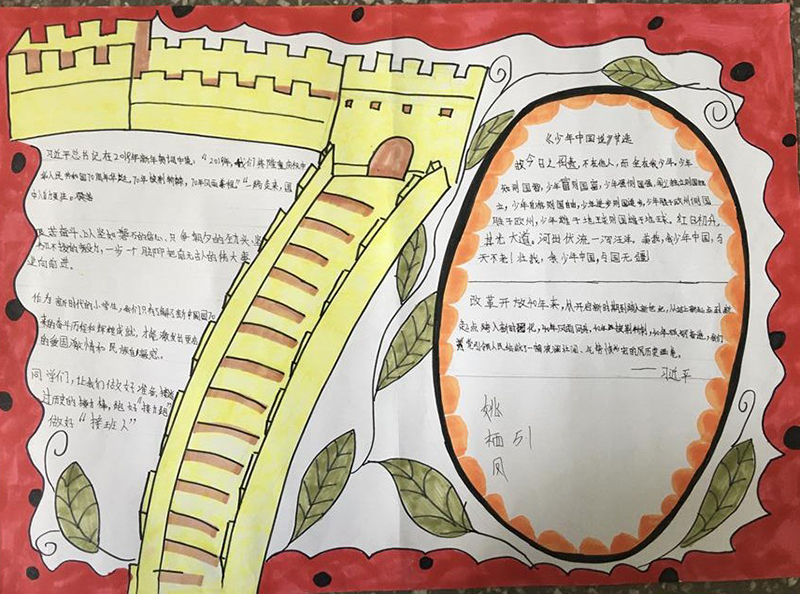 习近平总书记在2019年新年贺词中说：“2019年，我们将隆重庆祝中
华人民共和国70周年华诞。70年披荆斩棘，70年风雨兼程。”一路走来，国
人自力更生、
艰苦奋斗，以坚如磐石的信心、只争朝夕的劲头、坚
韧不拔的毅力，一步一个脚印把前无古人的伟大事
业向前进。
作为新时代的小学生，我们只有了解了新中国70
来的奋斗历程和辉煌成就，才能激发出更
的爱国激情和民族自
同学们，让我们做好准备，接
过历史的接力棒，跑好“接力跑”
做好“接班人”
《少年中国说》节选
故今日之责任，不在他人，而全在我少年。少年
知则国智，少年富则国富，少年强则国强，少年独立则国独
立，少年自由则国自由，少年进步则国进步，少年胜于欧洲则国
胜于欧洲，少年雄于地球则国雄于地球。红日初升，
其尤大道，河出伏流，一泻汪洋。美哉，我少年中国，与
天不老！壮哉，我少年中国，与国无疆！
改革开放40年来，从开启新时期到跨入新世纪，从站上新起点到
起点 跨入新时代，40年风雨同舟，40年披荆斩棘，40年砥砺奋进，我们
党引领人民绘就了一幅波澜壮阔、气势恢宏的历史画卷。
——习近平
姚
栖 51
凤